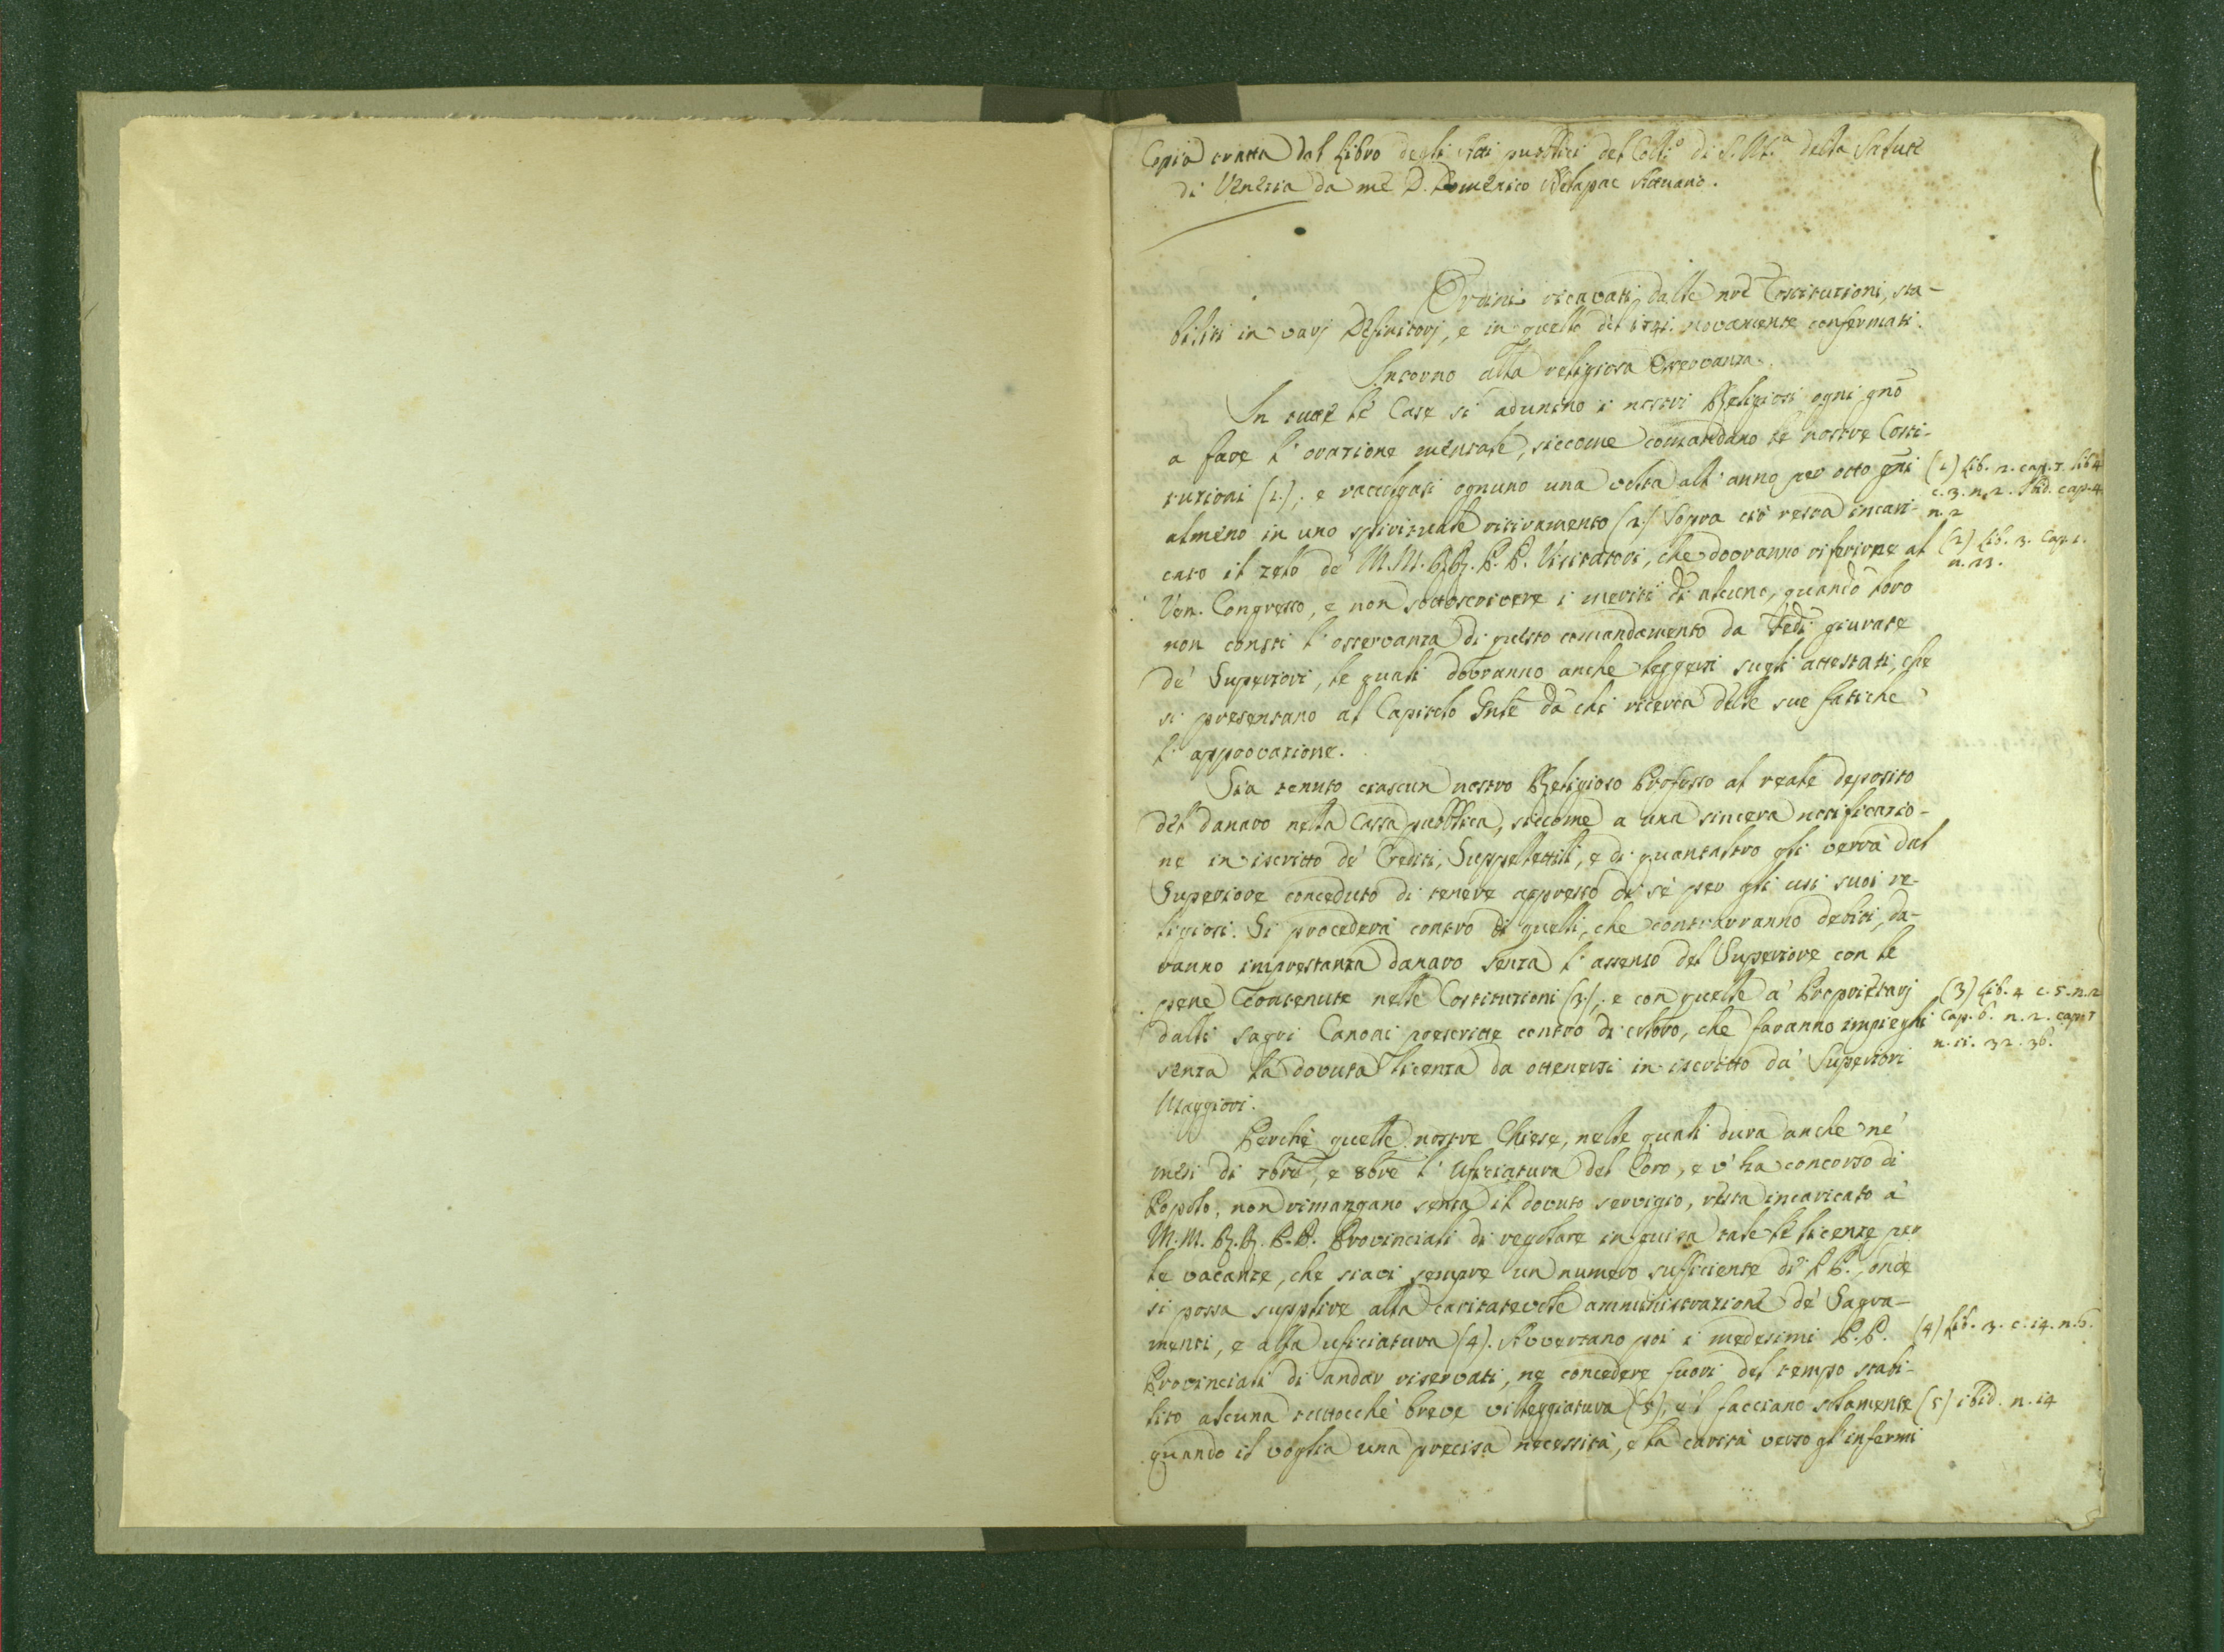 Copia tratta dal Libro degli Atti pubblici del Coll.º di S. M.ª della Salute
di Venezia da me D. Domenico Attuario.
Ordini ricavati dalle nrē Costituzioni, sta-
biliti in varj Definitorj, e in quello del 1741. novamente confermati.
Intorno alla religiosa Osservanza.
In tutte le Case si adunino i nostri Religiosi ogni gnō
a fare l'orazione mentale, siccome comandano le nostre Costi-
tuzioni (1.); e raccolgasi ognuno una volta all'anno per otto gni
(1) Lib. 2. cap. 7. lib 4
c. 3. n. 2. Ibid. cap. 4
n. 2
almeno in uno spirituale ritiramento (2.) Sopra ciò resta incari-
cato il zelo de' M.M. RR. P.P. Visitatori, che dovranno riferirne al
(2) Lib. 3. Cap. 1.
n. 23.
Ven. Congresso, e non sottoscrivere i meriti di alcuno, quando loro
non consti l'osservanza di questo comandamento da Fedi giurate
de' Superiori, le quali dovranno anche leggersi sugli attestati, che
si presentano al Capitolo Gnle da chi ricerca delle sue fatiche
l'approvazione.
Sia tenuto ciascun nostro Religioso Professo al reale deposito
del danaro nella Cassa pubblica, siccome a una sincera notificazio-
ne in iscritto de' Crediti, Suppellettili, e di quant'altro gli verrà dal
Superiore conceduto di tenere appresso di sè per gli usi suoi re-
ligiosi. Si procederà contro di quelli, che contrarranno debiti, da-
ranno imprestanza danaro senza l'assenso del Superiore con le
pene contenute nelle Costituzioni (3.); e con quelle a' Proprietarj
(3) Lib. 4 c. 5. n. 2
Cap. 6. n. 2. cap. 7
n. 11. 32. 36.
dalli sagri Canoni prescritte contro di coloro, che faranno impieghi
senza la dovuta licenza da ottenersi in iscritto da' Superiori
Maggiori.
Perchè quelle nostre Chiese, nelle quali dura anche ne'
mesi di 7bre, e 8bre l'Ufficiatura del Coro, e v'ha concorso di
Popolo, non rimangano senza il dovuto servigio, resta incaricato a'
M.M. R.R. P.P. Provinciali di regolare in guisa tale le licenze per
le vacanze, che siavi sempre un numero sufficiente di PP., onde
si possa supplire alla caritatevole amministrazione de' Sagra-
menti, e alla uficiatura (4). Avvertano poi i medesimi P.P.
(4) Lib. 3. c. 14. n. 6.
Provinciali di andar riservati, ne concedere fuori del tempo stabi-
lito alcuna tuttocchè breve villeggiatura (5); e'l facciano solamente
(5) ibid. n. 14
quando il voglia una precisa necessità, e la carità verso gl'infermi